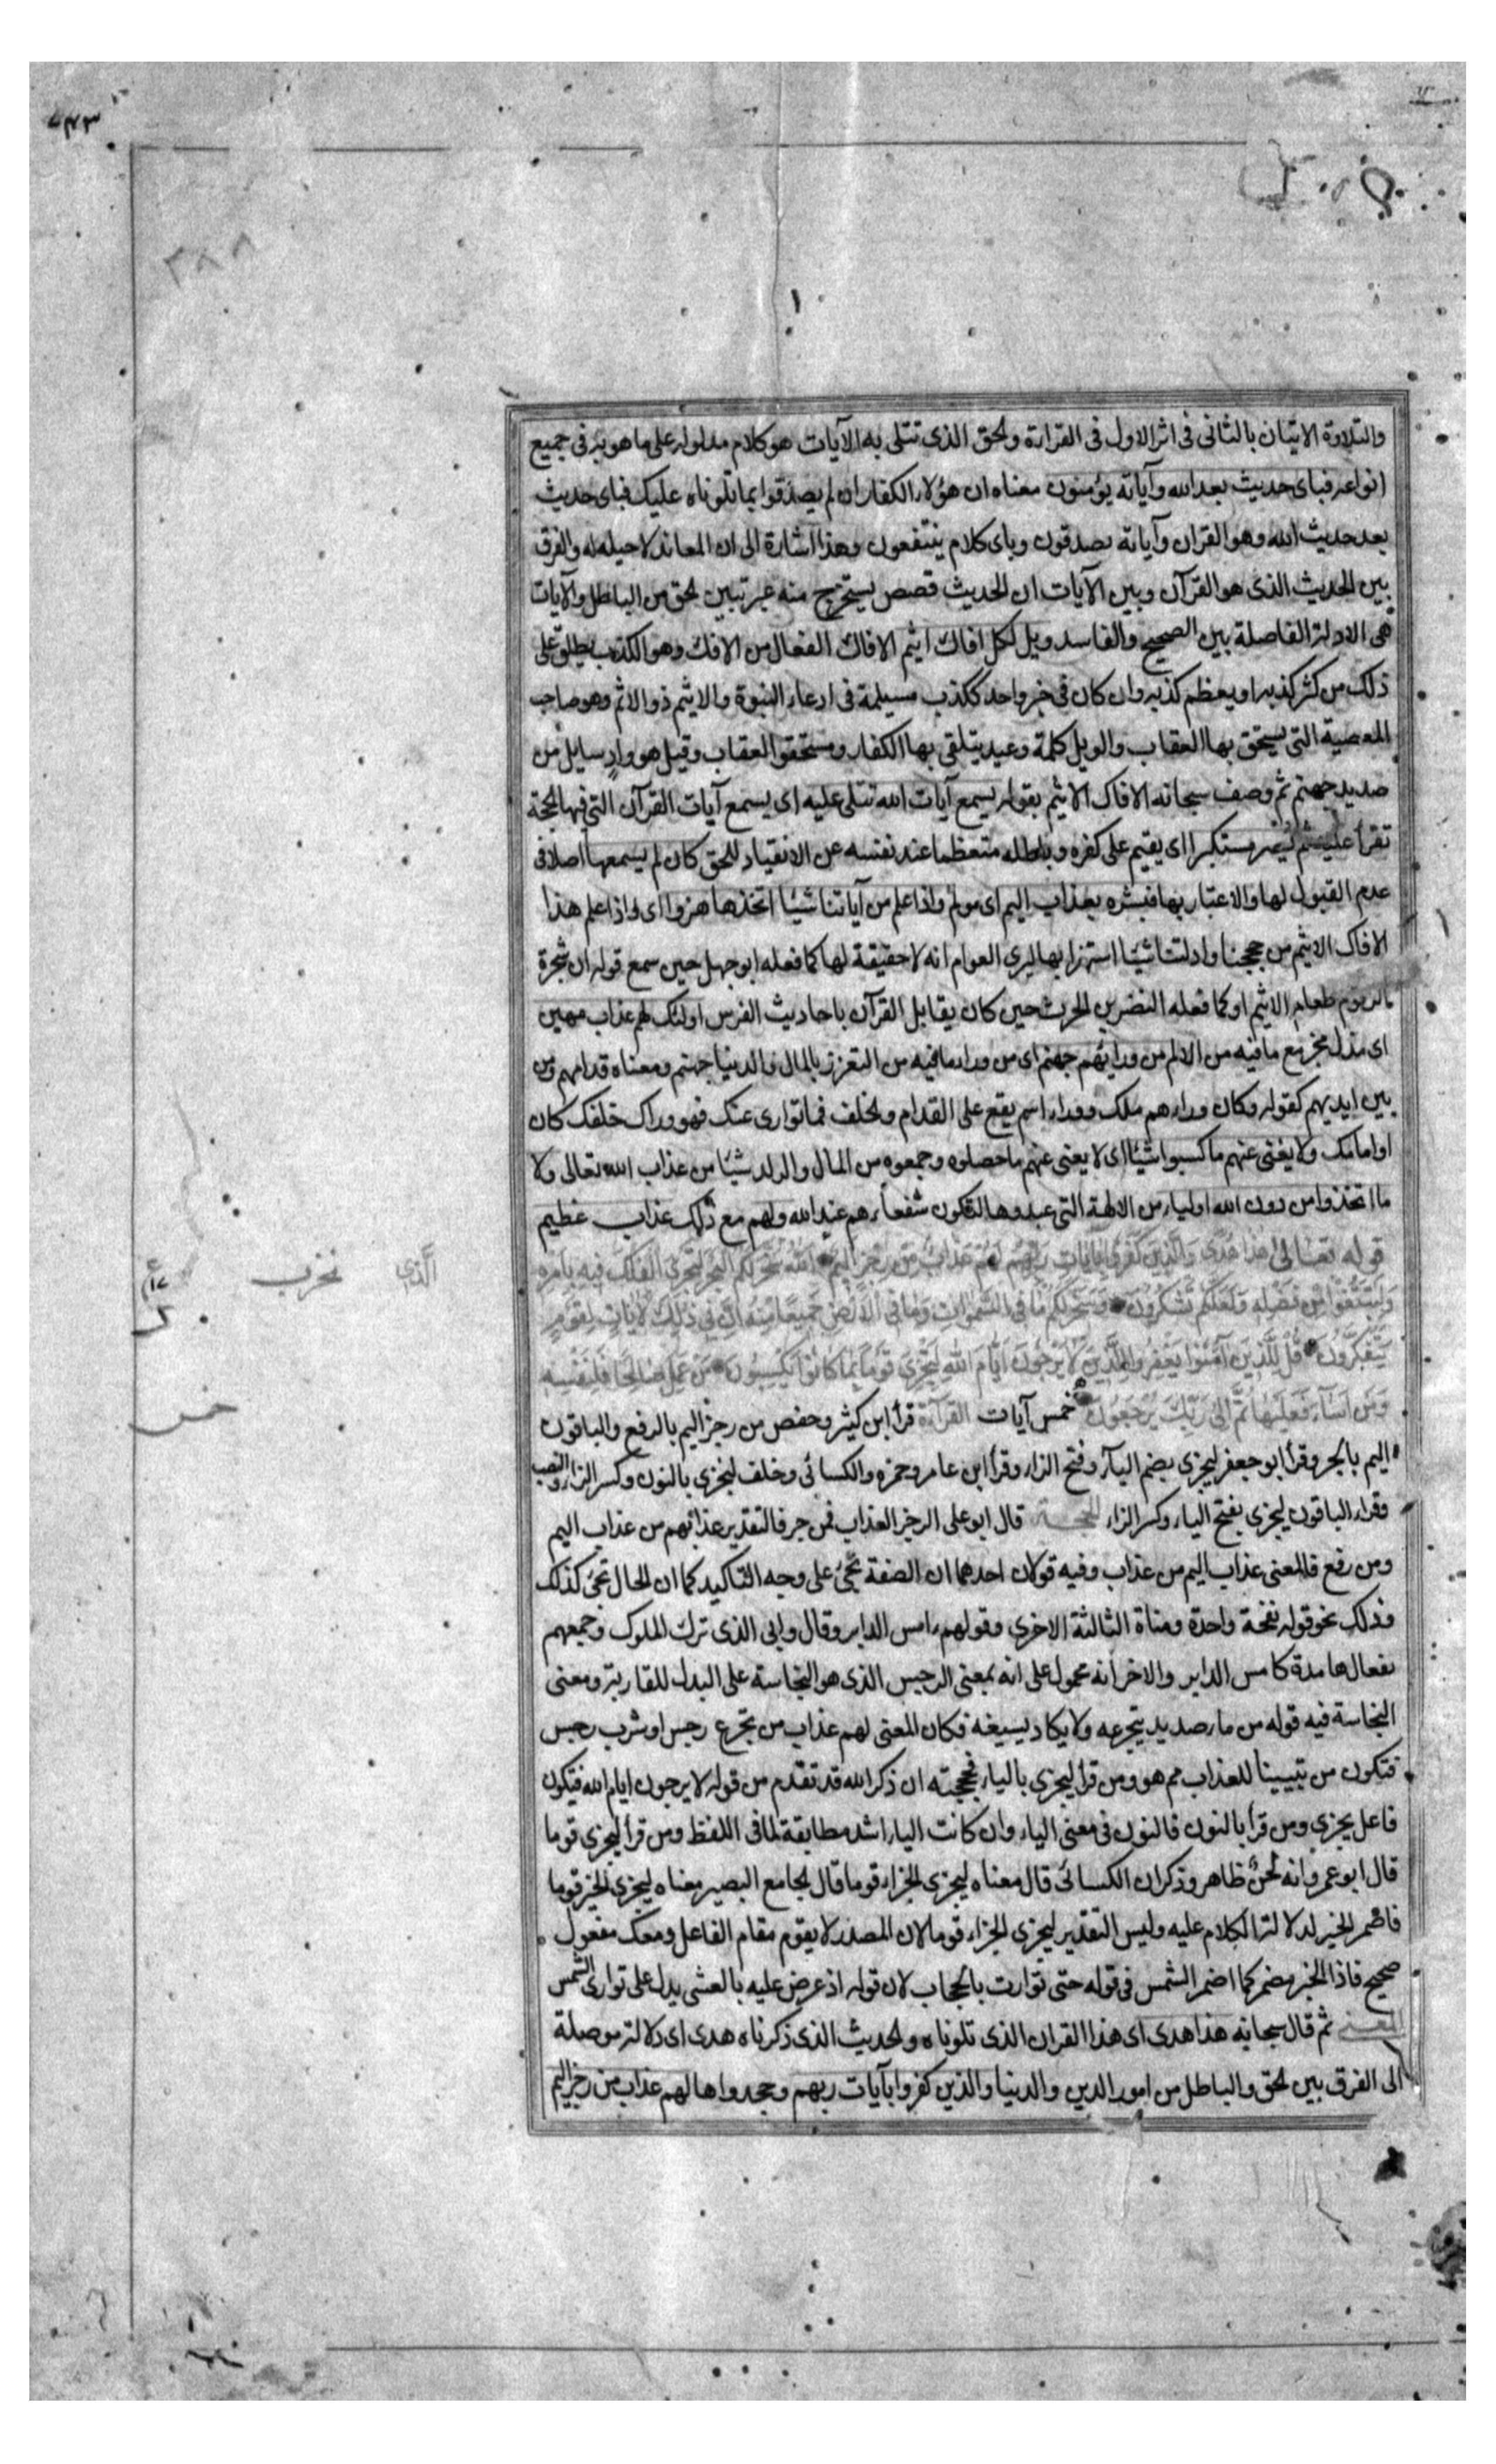 والتلاوة الاتيان بالثاني في اثر الاول في القراءة والحق الذي تتلى به الآيات هو كلام مدلوله على ما هو به في جميع
انواعه فباى حديث بعد الله وآياته يؤمنون معناه ان هؤلاء الكفار ان لم يصدقوا بما تلوناه عليك فباى حديث
بعد حديث الله وهو القرآن وآياته يصدقون وباى كلام ينتفعون وهذا اشارة الى ان المعاند لا حيلة له والفرق
بين الحديث الذى هو القرآن وبين الآيات ان الحديث قصص يستخرج منه عبر تبين الحق من الباطل والآيات
هى الادلة الفاصلة بين الصحيح والفاسد ويل لكل افاك اثيم الافاك الفعال من الافك وهو الكذب يطلق على
ذلك من كثر كذبه او يعظم كذبه وان كان في خبر واحد ككذب مسيلمة فى ادعاء النبوة والاثيم ذو الاثم وهو صاحب
المعصية التى يستحق بها العقاب والويل كلمة وعيد يتلقى بها الكفار ومستحقو العقاب وقيل هو واد سايل من
صديد جهنم ثم وصف سبحانه الافاك الاثيم بقوله يسمع آيات الله تتلى عليه اى يسمع آيات القرآن التى فيها الحجة
تقرأ عليه ثم يصر مستكبرا اى يقيم على كفره وباطله متعظما عند نفسه عن الانقياد للحق كان لم يسمعها اصلا فى
عدم القبول لها والاعتبار بها فبشره بعذاب اليم اى مولم واذا علم من آياتنا شيئا اتخذها هزوا اى واذا علم هذا
الافاك الاثيم من حججنا وادلتنا شيئا استهزا بها ليرى العوام انه لا حقيقة لها كما فعله ابو جهل حين سمع قوله ان شجرة
الزقوم طعام الاثيم او كما فعله النضر بن الحرث حين كان يقابل القرآن باحاديث الفرس اولئك لهم عذاب مهين
اى مذل مخز مع ما فيه من الالم من ورائهم جهنم اى من وراء ما فيه من التعزز بالمال والدنيا جهنم ومعناه قدامهم ومن
بين ايديهم كقوله وكان وراءهم ملك ووراء اسم يقع على القدام والخلف فما توارى عنك فهو وراك خلفك كان
او امامك ولا يغنى عنهم ما كسبوا شيئا اى لا يغنى عنهم ما حصلوه وجمعوه من المال والولد شيئا من عذاب الله تعالى ولا
ما اتخذوا من دون الله اولياء من الالهة التى عبدوها لتكون شفعاءهم عند الله ولهم مع ذلك عذاب عظيم
قوله تعالى هذا هُدًى وَالَّذِينَ كَفَرُوا بِآيَاتِ رَبِّهِمْ لَهُمْ عَذَابٌ مِنْ رِجْزٍ اَلِيمٌ اَللهُ سَخَّرَ لَكُمُ الْبَحْرَ لِتَجْرِىَ الْفُلْكُ فِيهِ بِأَمْرِهِ
الَّذِى
وَلِتَبْتَغُوا مِنْ فَضْلِهِ وَلَعَلَّكُمْ تَشْكُرُونَ وَسَخَّرَ لَكُمْ مَا فِى السَّمَوَاتِ وَمَا فِى الْاَرْضِ جَمِيعًا مِنْهُ اِنَّ فِى ذَلِكَ لَآيَاتٍ لِقَوْمٍ
يَتَفَكَّرُونَ قُلْ لِلَّذِينَ آمَنُوا يَغْفِرُوا لِلَّذِينَ لَا يَرْجُونَ اَيَّامَ اللهِ لِيَجْزِىَ قَوْمًا بِمَا كَانُوا يَكْسِبُونَ مَنْ عَمِلَ صَالِحًا فَلِنَفْسِهِ
وَمَنْ اَسَآءَ فَعَلَيْهَا ثُمَّ اِلَى رَبِّكَ يُرْجَعُونَ خمس آيات القراءة قرأ ابن كثير وحفص من رجز اليم بالرفع والباقون
خمس
اليم بالجر وقرأ ابو جعفر ليجزى بضم الياء وفتح الزاء وقرأ ابن عامر وحمزه والكسائى وخلف لنجزى بالنون وكسر الزاء والنصب
وقراء الباقون ليجزى بفتح الياء وكسر الزاء الحجة قال ابو على الرجز العذاب فمن جر فالتقدير عذابهم من عذاب اليم
ومن رفع فالمعنى عذاب اليم من عذاب وفيه قولان احدهما ان الصفة تجئ على وجه التاكيد كما ان الحال تجئ كذلك
وذلك نحو قوله نفخة واحدة ومناة الثالثة الاخرى وقولهم امس الدابر وقال وابى الذى ترك الملوك وجمعهم
بفعال هامدة كامس الدابر والاخر انه محمول على انه بمعنى الرجس الذى هو النجاسة على البدل للقاربة ومعنى
النجاسة فيه قوله من ماء صديد يتجرعه ولا يكاد يسيغه فكان المعنى لهم عذاب من تجرع رجس او شرب رجس
فتكون من تبيينا للعذاب مم هو ومن قرأ ليجزى بالياء فحجته ان ذكر الله قد تقدم من قوله لا يرجون ايام الله فيكون
فاعل يجزى ومن قرأ بالنون فالنون فى معنى الياء وان كانت الياء اشد مطابقة لما فى اللفظ ومن قرأ ليجزى قوما
قال ابو عمرو انه لحن ظاهر وذكر ان الكسائى قال معناه ليجزى الجزاء قوما قال الجامع البصير معناه ليجزى الخير قوما
فاضمر الخير لدلالة الكلام عليه وليس التقدير ليجزى الجزاء قوما لان المصدر لا يقوم مقام الفاعل ومعك مفعول
صحيح فاذا الخير مضمر كما اضمر الشمس فى قوله حتى توارت بالحجاب لان قوله اذ عرض عليه بالعشى يدل على توارى الشمس
المعنى ثم قال سبحانه هذا هدى اى هذا القران الذى تلوناه والحديث الذى ذكرناه هدى اى دلالة موصلة
الى الفرق بين الحق والباطل من امور الدين والدنيا والذين كفروا بآيات ربهم وجحدوا ها لهم عذاب من رجز اليم